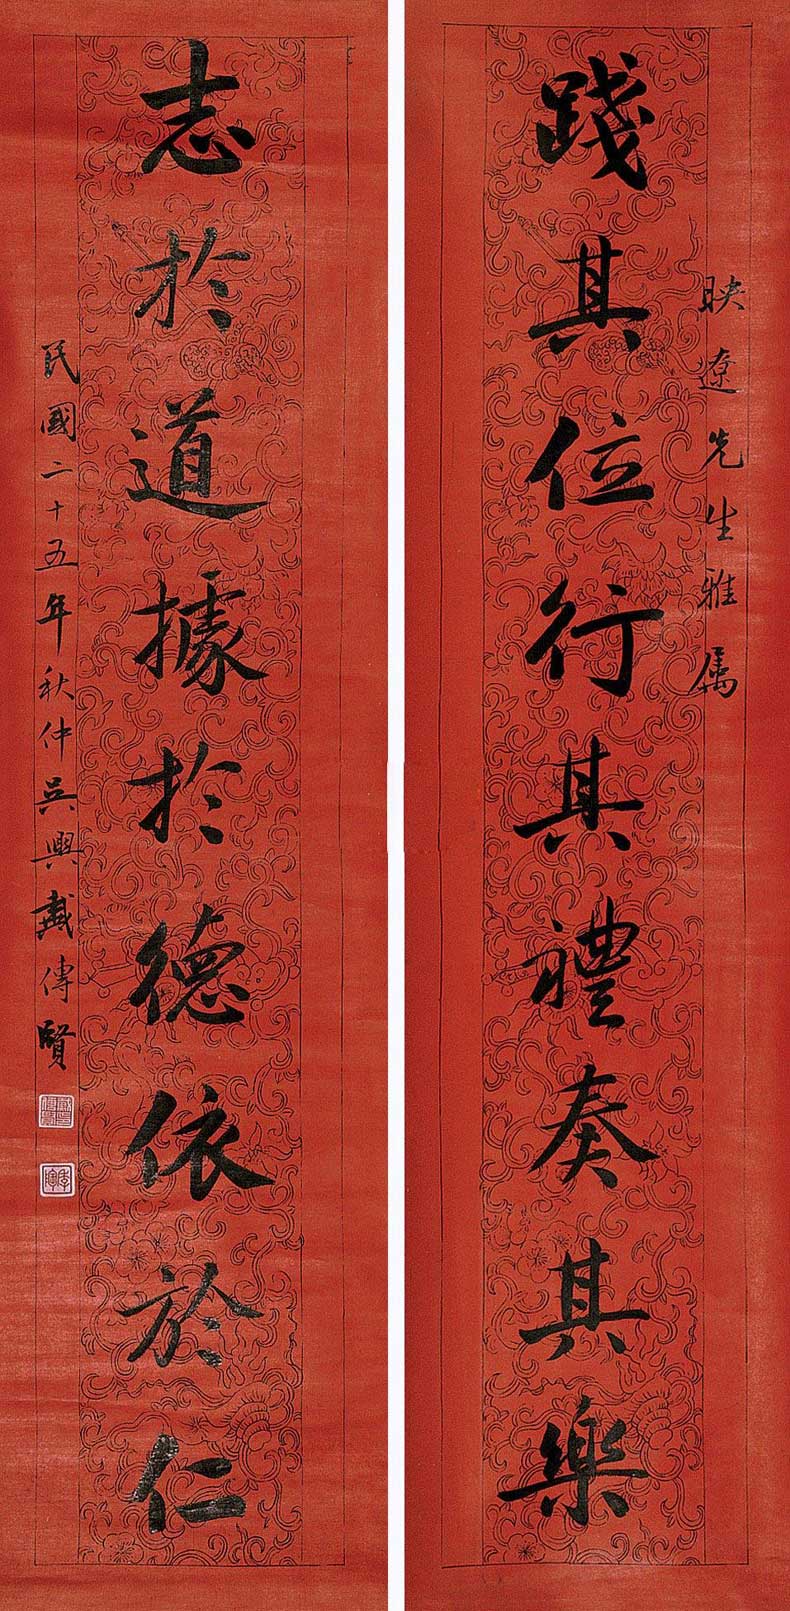 映遼先生雅属
踐其位行其禮奏其樂
志於道據於德依於仁
民國二十五年秋仲吳興戴傳賢